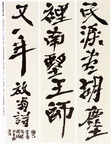 民淚盡胡塵
裡南望王師
又一年放翁詩